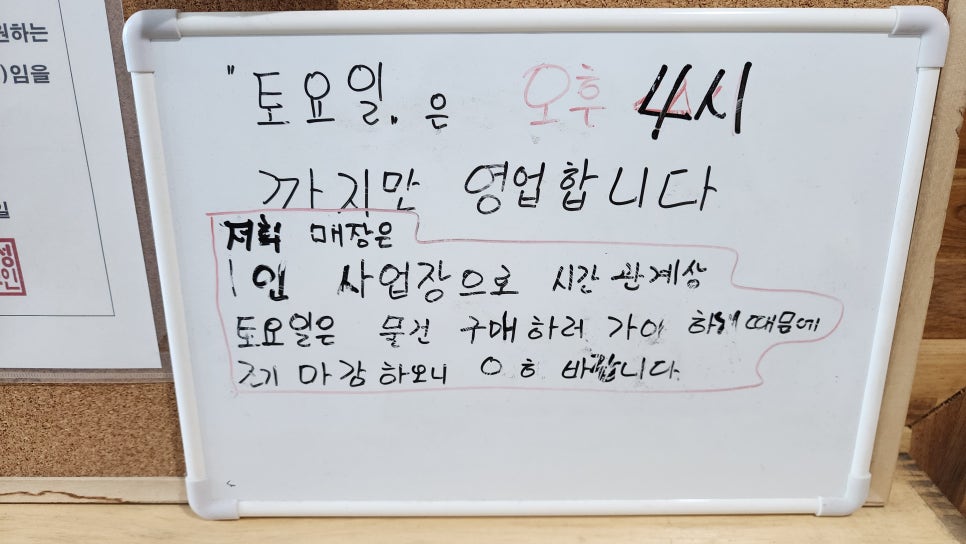 원하는
)임을
일
성
인
"토요일."은 오후 4시
까지만 영업합니다
저희 매장은
1인 사업장으로 시간 관계상
토요일은 물건 구매하러 가야 하기 때문에
조기 마감하오니 양해 바랍니다